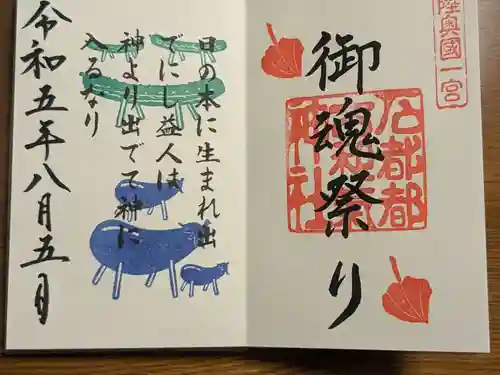 陸奥國一宮
御魂祭り
都都古和氣神社
日の本に生まれ出
でにし益人は
神より出でて神に
入るなり
令和五年八月五日